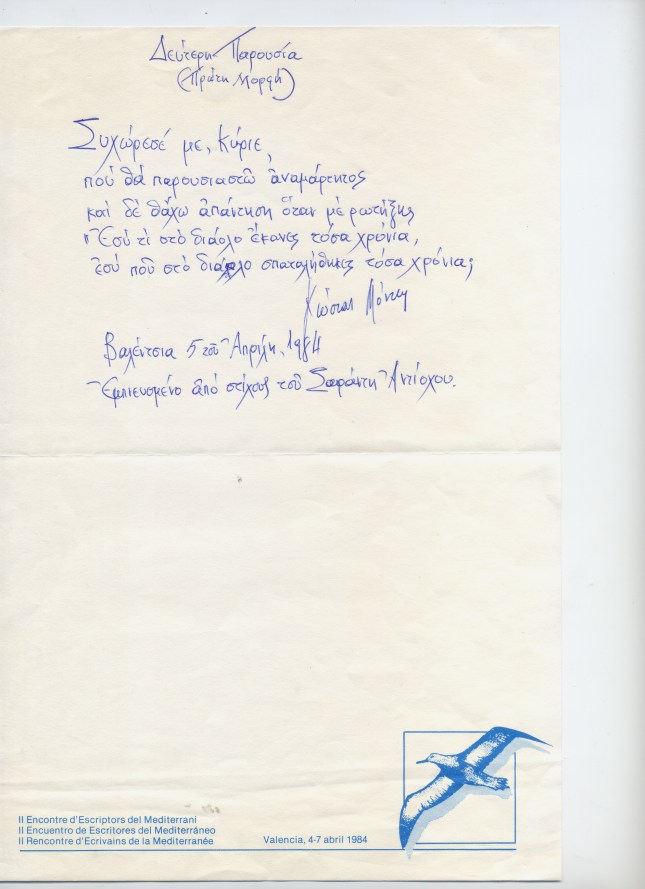 Δεύτερη Παρουσία
(Πρώτη Μορφή)
Συχώρεσέ με, Κύριε,
πού θά παρουσιαστῶ ἀναμάρτητος
καί δέ θἄχω ἀπάντηση ὅταν μέ ρωτήξῃς
"Ἐσύ τί στό διάολο ἔκανες τόσα χρόνια,
ἐσύ πού στό διάολο σπαταλήθηκες τόσα χρόνια;
Κώστας Μόντης
Βαλέντσια 5 τοῦ Ἀπρίλη, 1984
Ἐμπνευσμένο ἀπό στίχους τοῦ Σαράντη Ἀντίοχου.
II Encontre d'Escriptors del Mediterrani
II Encuentro de Escritores del Mediterráneo
II Rencontre d'Ecrivains de la Mediterranée
Valencia, 4-7 abril 1984